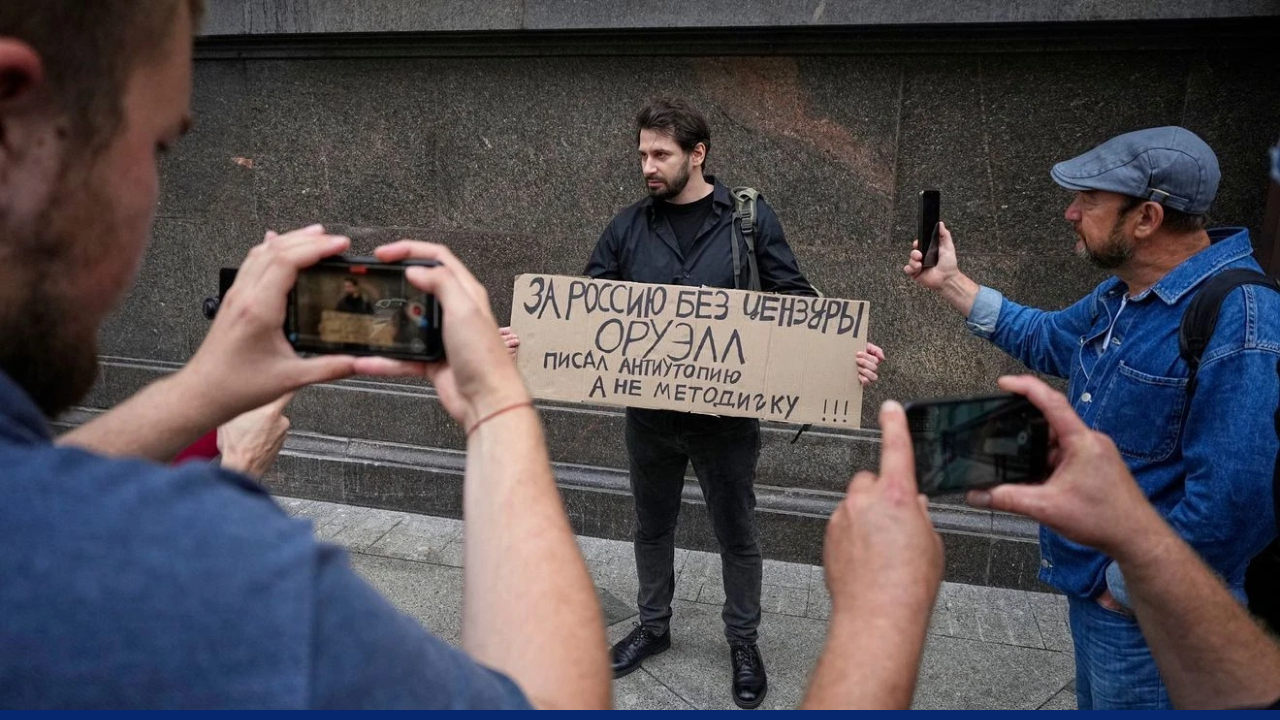 ЗА РОССИЮ БЕЗ ЦЕНЗУРЫ
ОРУЭЛЛ
ПИСАЛ АНТИУТОПИЮ
А НЕ МЕТОДИЧКУ !!!